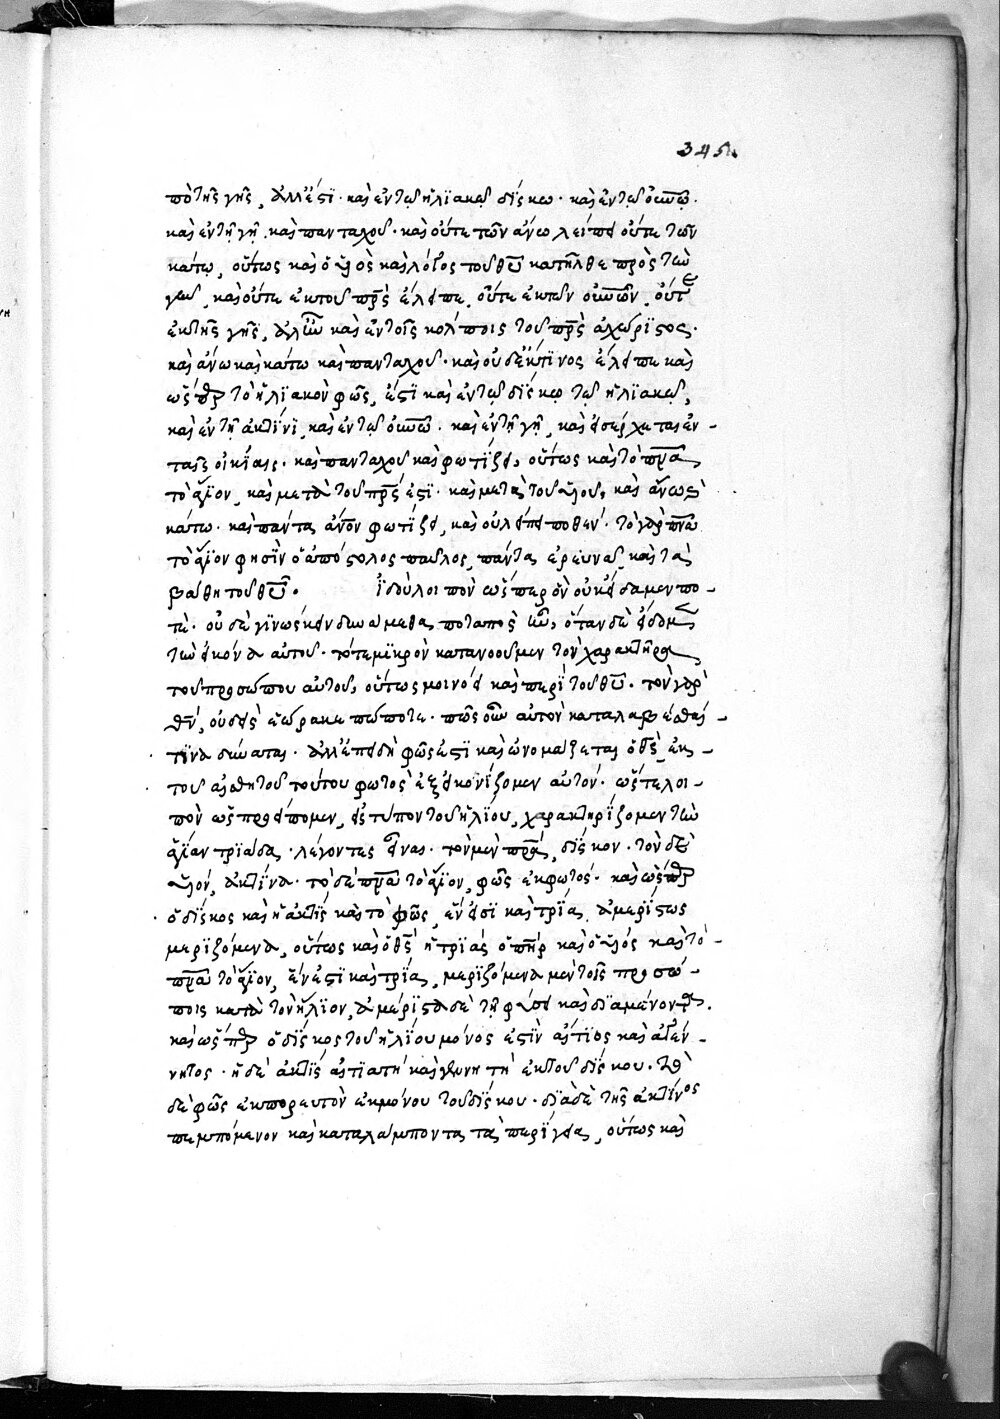 345
πὸ τῆς γῆς, ἀλλ' ἔστϊ· καὶ ἐν τῷ ἡλϊακῷ δΐσκω· καὶ ἐν τῷ οὐνῶ·
καὶ ἐν τῇ γῇ· καὶ πανταχοῦ· καὶ οὔτε τῶν ἄνω λείπει οὔτε τῶν
κάτω, οὕτως καὶ ὁ υἱὸς καὶ λόγος τοῦ θυ κατῆλθε πρὸς τὴν
γῆν, καὶ οὔτε ἐκ τοῦ πρς ἔλειπε, οὔτε ἐκ τῶν οὐνῶν, οὔτε
ἐκ τῆς γῆς, ἀλλ' ἦν καὶ ἐν τοῖς κόλποις τοῦ πρς ἀχώρϊστος·
καὶ ἄνω καὶ κάτω καὶ πανταχοῦ· καὶ οὐδέν τϊνος ἔλειπε καὶ
ὥσπερ τὸ ἡλϊακὸν φῶς, ἔστϊ καὶ ἐν τῷ δΐσκῳ τῷ ἡλϊακῷ,
καὶ ἐν τῇ ἀκτῖνϊ, καὶ ἐν τῷ οὐνῶ· καὶ ἐν τῇ γῇ, καὶ εἰσέρχεται ἐν -
ταῖς οἰκΐαις· καὶ πανταχοῦ καὶ φωτΐζει, οὕτως καὶ τὸ πνα
τὸ ἅγϊον, καὶ μετὰ τοῦ πρς ἐστϊ· καὶ μετὰ τοῦ υἱοῦ, καὶ ἄνω καὶ
κάτω· καὶ πάντα ἄνον φωτΐζει, καὶ οὐ λείπει ποθέν· τὸ γὰρ πνα
τὸ ἅγϊον φησὶν ὁ ἀπόστολος παῦλος, πάντα ἐρευνᾷ, καὶ τὰ
βάθη τοῦ θυ· ϊδοὺ λοιπὸν ὥσπερ ὃν οὐκ εἴδαμεν πο -
τὲ· οὐδὲ γϊνώσκειν δυνάμεθα, ποταπός ἦν, ὅταν δὲ εἴδομεν
τὴν εἰκόνα αὐτοῦ· τότε μϊκρὸν κατανοοῦμεν τὸν χαρακτῆρα
τοῦ προσώπου αὐτοῦ, οὕτως μοι νόει καὶ περὶ τοῦ θυ· τὸν γὰρ
θν, οὐδεὶς ἑώρακε πώποτε· πῶς οὖν αὐτὸν καταλαβέσθαι -
τϊνὰ δύναται· ἀλλ' ἐπειδὴ φῶς ἐστϊ καὶ ὀνομάζεται ὁ θς, ἐκ -
τοῦ αἰσθητοῦ τούτου φωτὸς ἐξεικονΐζομεν αὐτόν· ὥστε λοι -
πὸν ὡς προείπομεν, εἰς τύπον τοῦ ἡλΐου, χαρακτηρΐζομεν τὴν
ἁγΐαν τρϊάδα· λέγοντες εἶναι· τὸν μὲν πρα, δΐσκον· τὸν δὲ
υἱόν, ἀκτῖνα· τὸ δὲ πνα τὸ ἅγϊον, φῶς ἐκ φωτός· καὶ ὥσπερ
ὁ δΐσκος καὶ ἡ ἀκτὶς καὶ τὸ φῶς, ἕν εἰσϊ καὶ τρΐα, ἀμερΐστως
μερϊζόμενα, οὕτως καὶ ὁ θς ἡ τρϊάς ὁ πηρ καὶ ὁ υἱός καὶ τὸ -
πνα τὸ ἅγϊον, ἕν ἐστϊ καὶ τρΐα, μερϊζόμενα μὲν τοῖς προσώ -
ποις κατὰ τὸν ἥλϊον, ἀμέρϊστα δὲ τῇ φύσει καὶ δϊαμένοντα.
καὶ ὥσπερ ὁ δΐσκος τοῦ ἡλΐου μόνος ἐστὶν αἴτϊος καὶ ἀγέν -
νητος· ἡ δὲ ἀκτὶς αἰτϊατή καὶ γεννητὴ ἐκ τοῦ δΐσκου· τὸ
δὲ φῶς ἐκπορευτὸν ἐκ μόνου τοῦ δΐσκου· δϊὰ δὲ τῆς ἀκτῖνος
πεμπόμενον καὶ καταλάμποντα τὰ περΐγεια, οὕτως καὶ